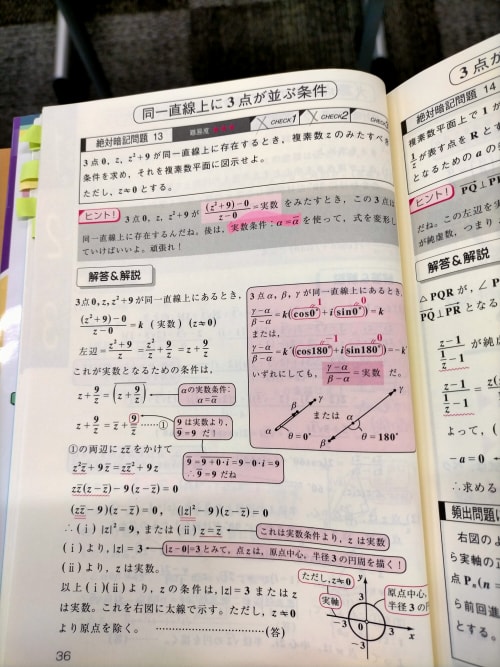 同一直線上に3点が並ぶ条件
絶対暗記問題 13
難易度 ★★★
CHECK1
CHECK2
3点0, z, z²+9が同一直線上に存在するとき, 複素数zのみたすべき
条件を求め, それを複素数平面に図示せよ。
ただし, z≠0とする。
ヒント!
3点0, z, z²+9が (z²+9)−0/z−0=実数 をみたすとき, この3点は
同一直線上に存在するんだね。後は, 実数条件:α=α̅ を使って, 式を変形し
ていけばいいよ。頑張れ!
解答&解説
3点0, z, z²+9が同一直線上にあるとき,
(z²+9)−0/z−0=k (実数) (z≠0)
左辺=z²+9/z=z²/z+9/z=z+9/z
これが実数となるための条件は,
z+9/z=(z+9/z)̅
αの実数条件:
α=α̅
z+9/z=z̅+9̅/z̅ ……①
9は実数より,
9̅=9 だ!
①の両辺にzz̅をかけて
9̅=9+0·i=9−0·i=9
∴9̅=9だね
z²z̅+9z̅=zz̅²+9z
zz̅(z−z̅)−9(z−z̅)=0
(zz̅−9)(z−z̅)=0, (|z|²−9)(z−z̅)=0
∴(i)|z|²=9, または(ii)z=z̅
これは実数条件より, zは実数
(i)より, |z|=3
|z−0|=3とみて, 点zは, 原点中心, 半径3の円周を描く!
(ii)より, zは実数。
以上(i)(ii)より, zの条件は, |z|=3 またはz
は実数。これを右図に太線で示す。ただし, z≠0
より原点を除く。 ……(答)
3点α, β, γが同一直線上にあるとき,
γ−α/β−α=k(cos0°+i sin0°)=k
1
0
または,
γ−α/β−α=k(cos180°+i sin180°)=−k
−1
0
いずれにしても, γ−α/β−α=実数 だ。
γ
β
α
θ=0°
または
γ
α
β
θ=180°
ただし, z≠0
実軸
原点中心,
半径3の円
y
3
−3
0
3
x
−3
36
3点が
絶対暗記問題 14
複素数平面上で1
1/zが表す点をRと
となるためのzの
ヒント!
PQ⊥PR
だね。この左辺を実
が純虚数, つまり
解答&解説
△PQRが, ∠P
PQ⊥PRとなる
z−1/1/z−1 が純
z−1/1/z−1=
よって, (
−a=0
∴求める
頻出問題に
右図のよ
ら実軸の正
点Pₙ(n=
ら前回進